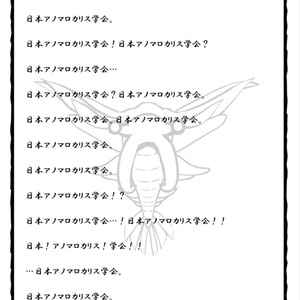 日本アノマロカリス学会。
日本アノマロカリス学会！日本アノマロカリス学会？
日本アノマロカリス学会…
日本アノマロカリス学会？日本アノマロカリス学会。
日本アノマロカリス学会。日本アノマロカリス学会。
日本アノマロカリス学会。
日本アノマロカリス学会。
日本アノマロカリス学会！？
日本アノマロカリス学会…！日本アノマロカリス学会！！
日本！アノマロカリス！学会！！
…日本アノマロカリス学会。
日本アノマロカリス学会。